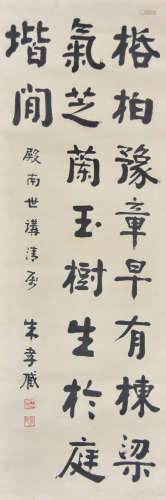 栝柏豫章早有棟梁
氣芝蘭玉樹生於庭
堦閒
殿南世講清屬
朱孝臧